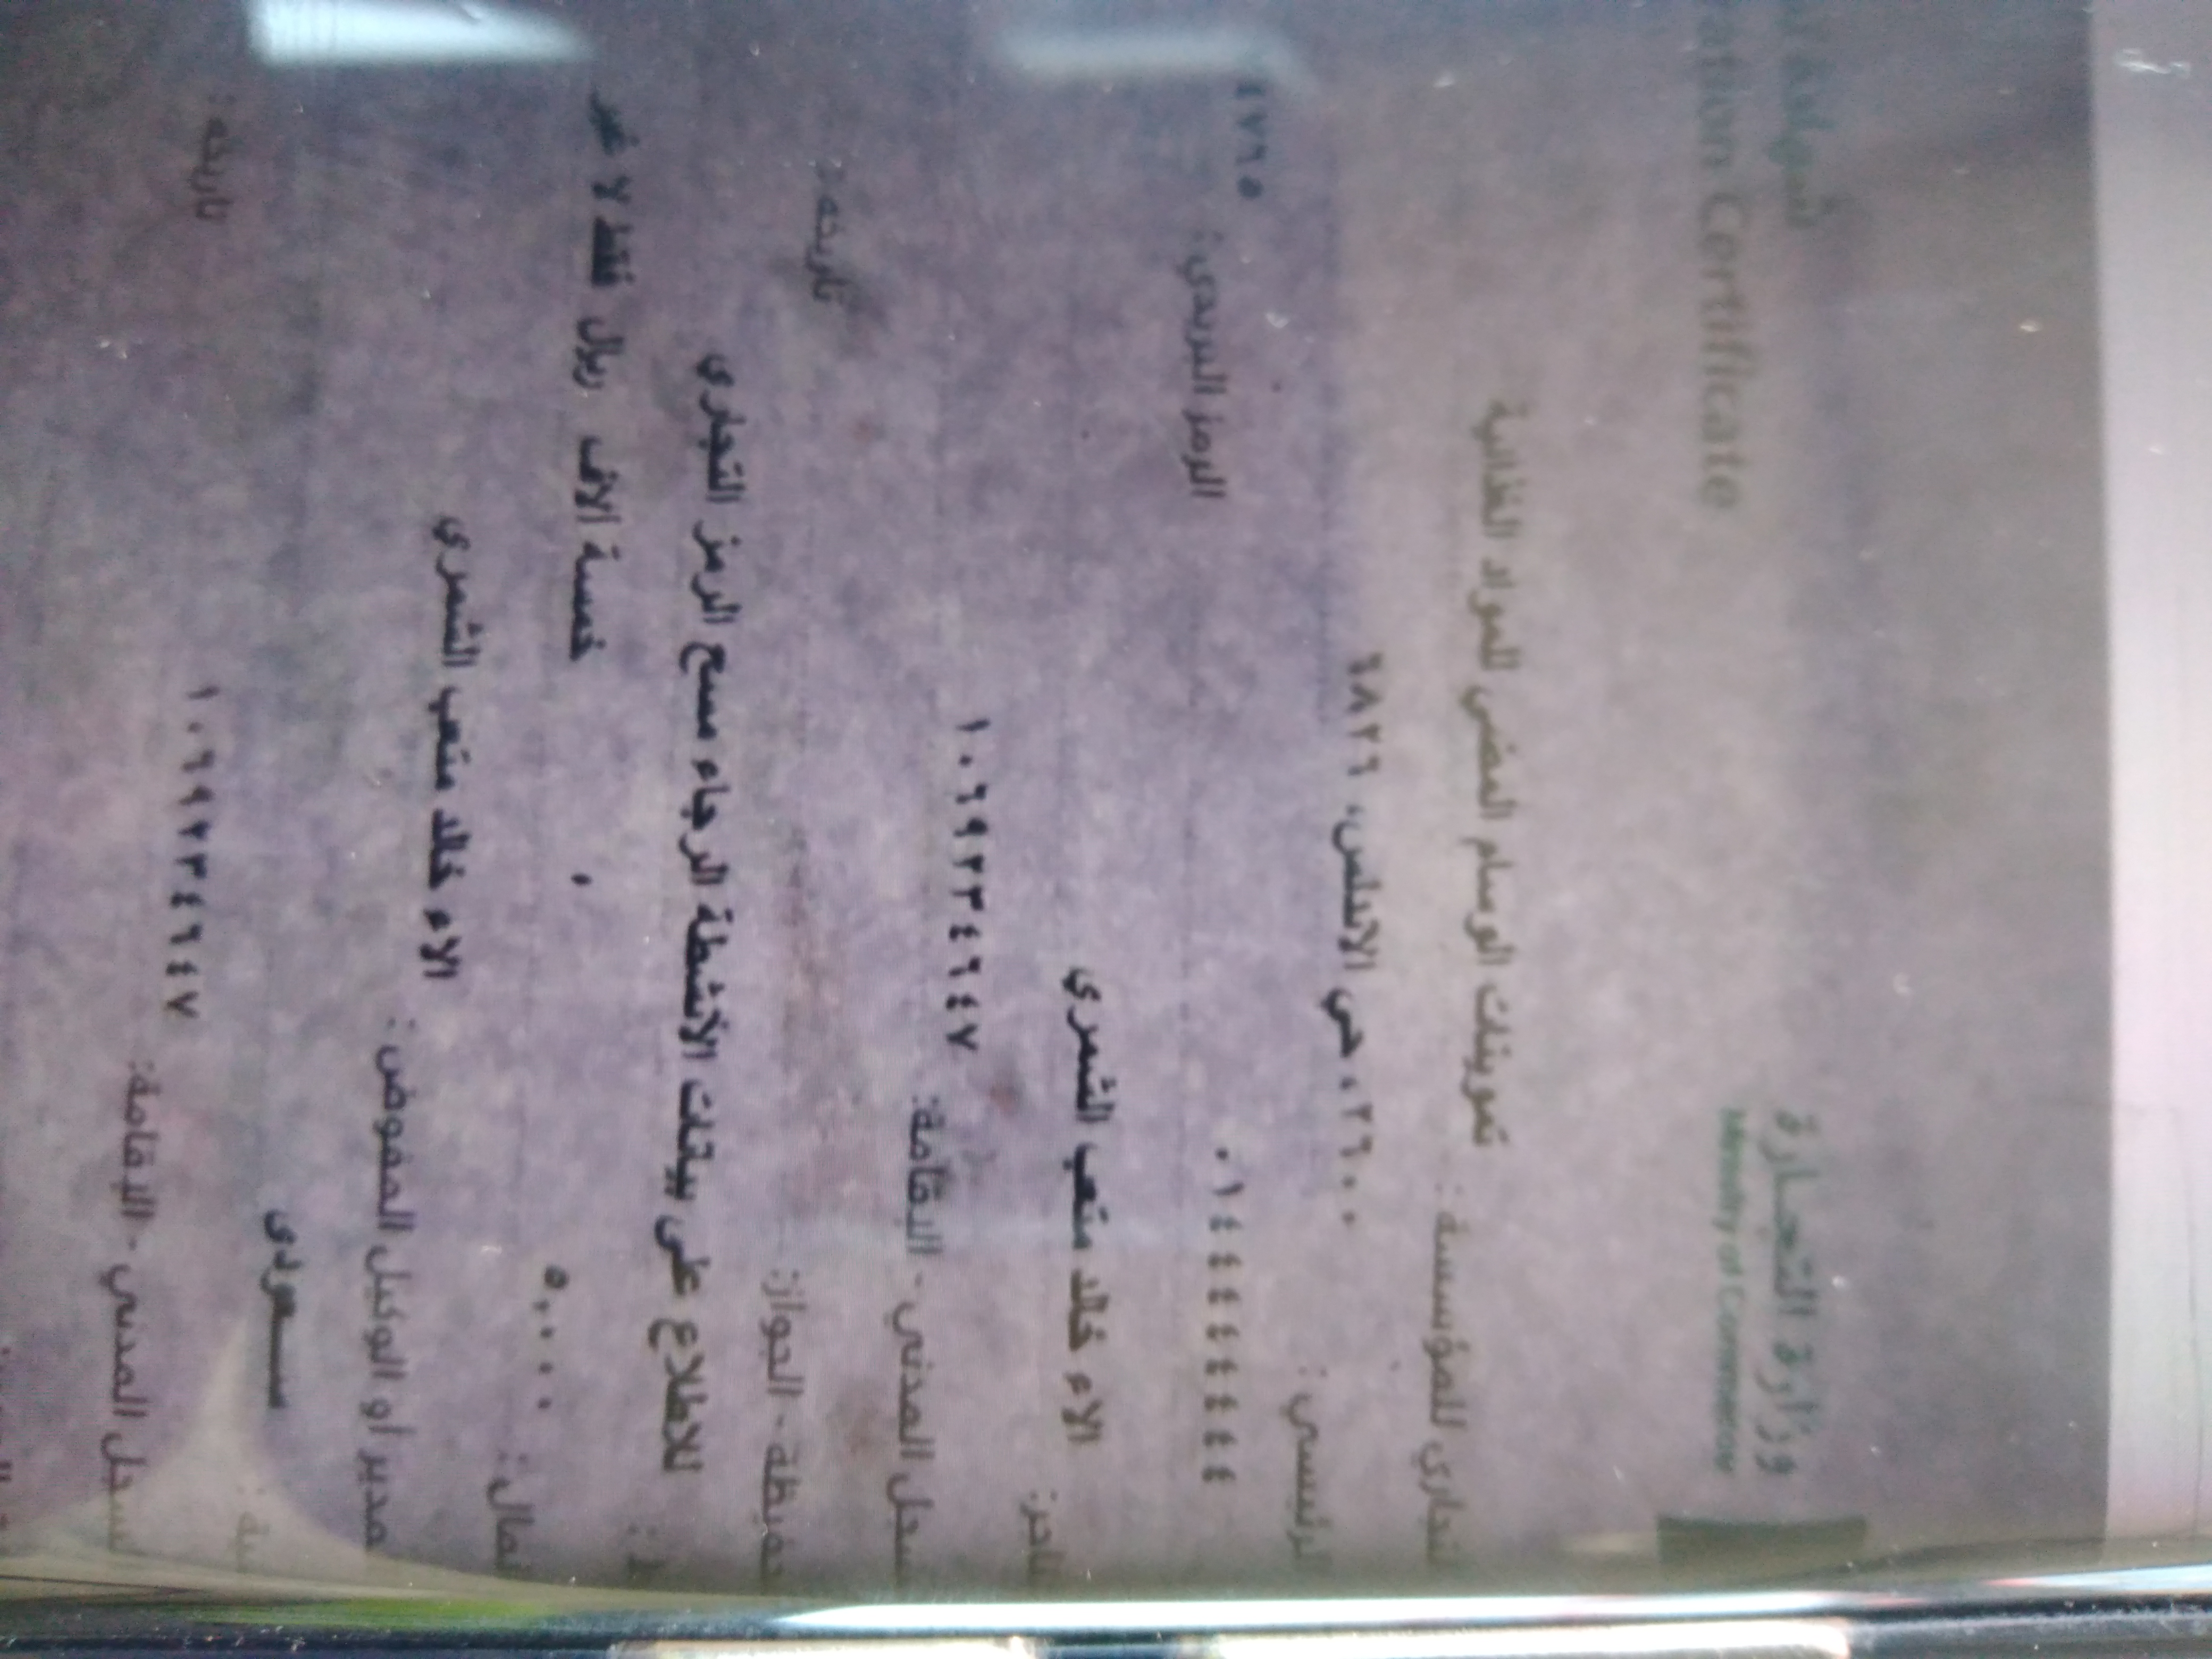 وزارة التجارة
شهادة
Ministry of Commerce
ation Certificate
تجاري للمؤسسة : تموينات الوسام المضي للمواد الغذائية
لرئيسي : ٢٦٠٠، حي الاندلس، ٦٨٢٦
٠١٤٤٤٤٤٤٤٤ الرمز البريدي :
الاء خالد متعب الشمري
سجل المدني - الإقامة: ١٠٦٩٢٣٤٦٤٧
حفيظة - الجواز: تاريخه :
للاطلاع على بيانات الأنشطة الرجاء مسح الرمز التجاري
لمال : ٥,٠٠٠ خمسة الاف ريال فقط لا غير
مدير أو الوكيل المفوض : الاء خالد متعب الشمري
سعودى
سجل المدني - الإقامة: ١٠٦٩٢٣٤٦٤٧ تاريخه :